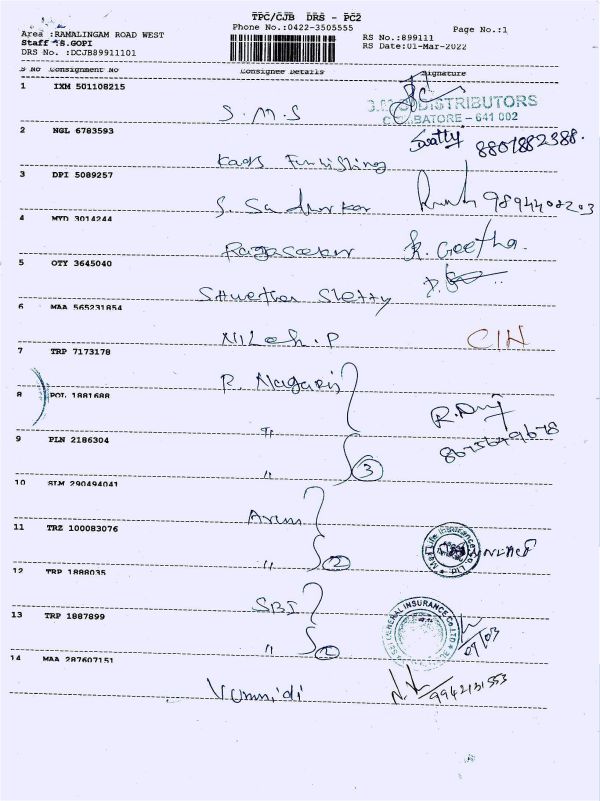 TPC/CJB DRS - PC2
Area :RAMALINGAM ROAD WEST
Phone No.:0422-3505555
Page No.:1
Staff :S.GOPI
RS No.:899111
DRS No. :DCJB89911101
RS Date:01-Mar-2022
S No Consignment No Consignee Details Signature
1 IXM 501108215
S.M.S
DISTRIBUTORS
COIMBATORE - 641 002
2 NGL 6783593
Swatty 8807882388.
Furnishing
3 DPI 5089257
S. 9894402203
4 MYD 3014244
Rajasekar K. Geetha.
5 OTY 3645040
Shwetha Shetty
6 MAA 565231854
Nilesh.P
7 TRP 7173178
R. Nagaraj
8 POL 1881688
"
9 PLN 2186304
" 3
10 SLM 290494041
Arun
11 TRZ 100083076
" 2
Max Life Insurance Co. Ltd
12 TRP 1888035
SBI
13 TRP 1887899
" 2
SBI GENERAL INSURANCE CO LTD
01/03
14 MAA 287607151
Vummidi
9942131553